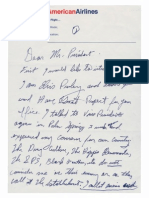 AmericanAirlines
Dear Mr. President
First I would like to introduce
I am Elvis Presley and
and Have Great Respect for your
office. I talked to Vice President
Agnew in Palm Springs 3 weeks and
expressed my concern for our Country.
The Drug Culture, The Hippie Elements,
The SDS, Black Panthers, etc do not
consider me as their enemy or as they
call it The Establishment. I call it